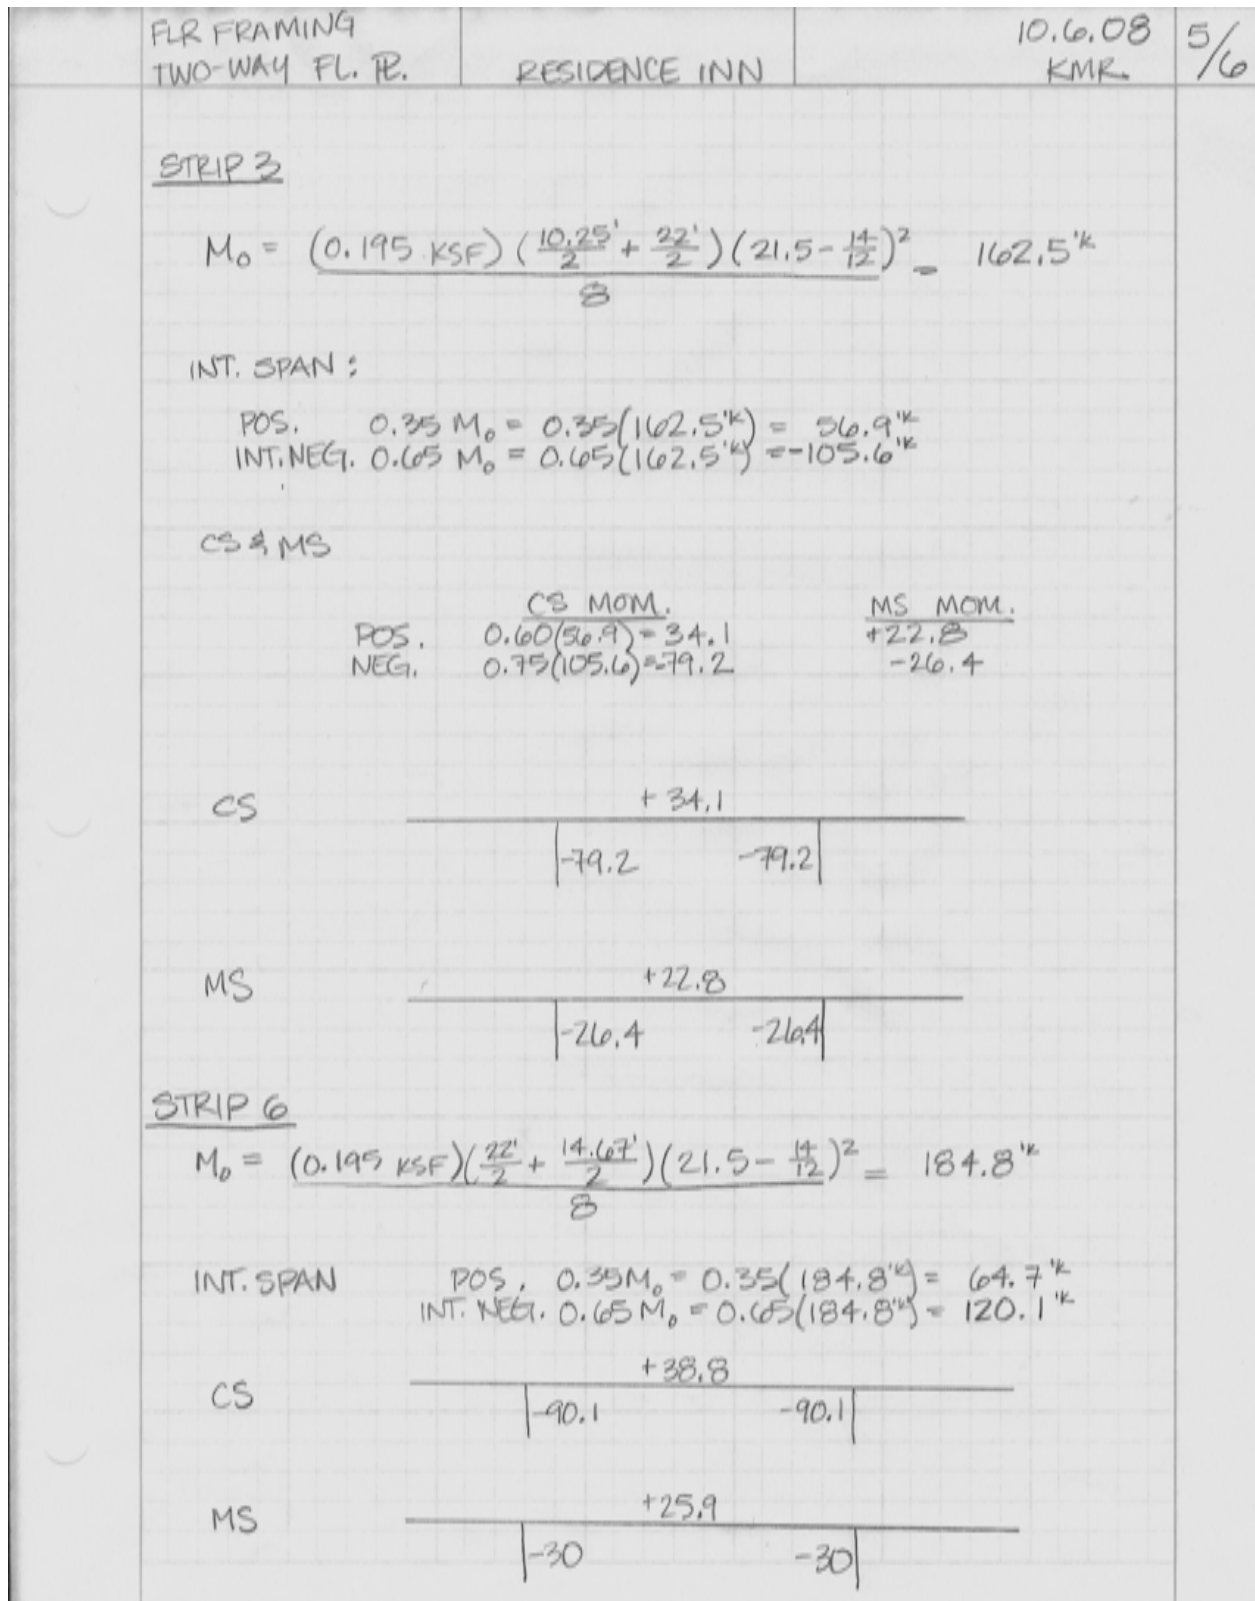 FLR FRAMING
TWO-WAY FL. PL.
RESIDENCE INN
10.6.08
KMR.
5/6
STRIP 3
M₀ = (0.195 KSF)(10.25'/2 + 22'/2)(21.5 - 14/12)² / 8 = 162.5'ᵏ
INT. SPAN:
POS. 0.35 M₀ = 0.35(162.5'ᵏ) = 56.9'ᵏ
INT. NEG. 0.65 M₀ = 0.65(162.5'ᵏ) = -105.6'ᵏ
CS & MS
CS MOM. MS MOM.
POS. 0.60(56.9) = 34.1 +22.8
NEG. 0.75(105.6) = -79.2 -26.4
CS +34.1
-79.2 -79.2
MS +22.8
-26.4 -26.4
STRIP 6
M₀ = (0.195 KSF)(22'/2 + 14.67'/2)(21.5 - 14/12)² / 8 = 184.8'ᵏ
INT. SPAN POS. 0.35M₀ = 0.35(184.8'ᵏ) = 64.7'ᵏ
INT. NEG. 0.65 M₀ = 0.65(184.8'ᵏ) = 120.1'ᵏ
CS +38.8
-90.1 -90.1
MS +25.9
-30 -30